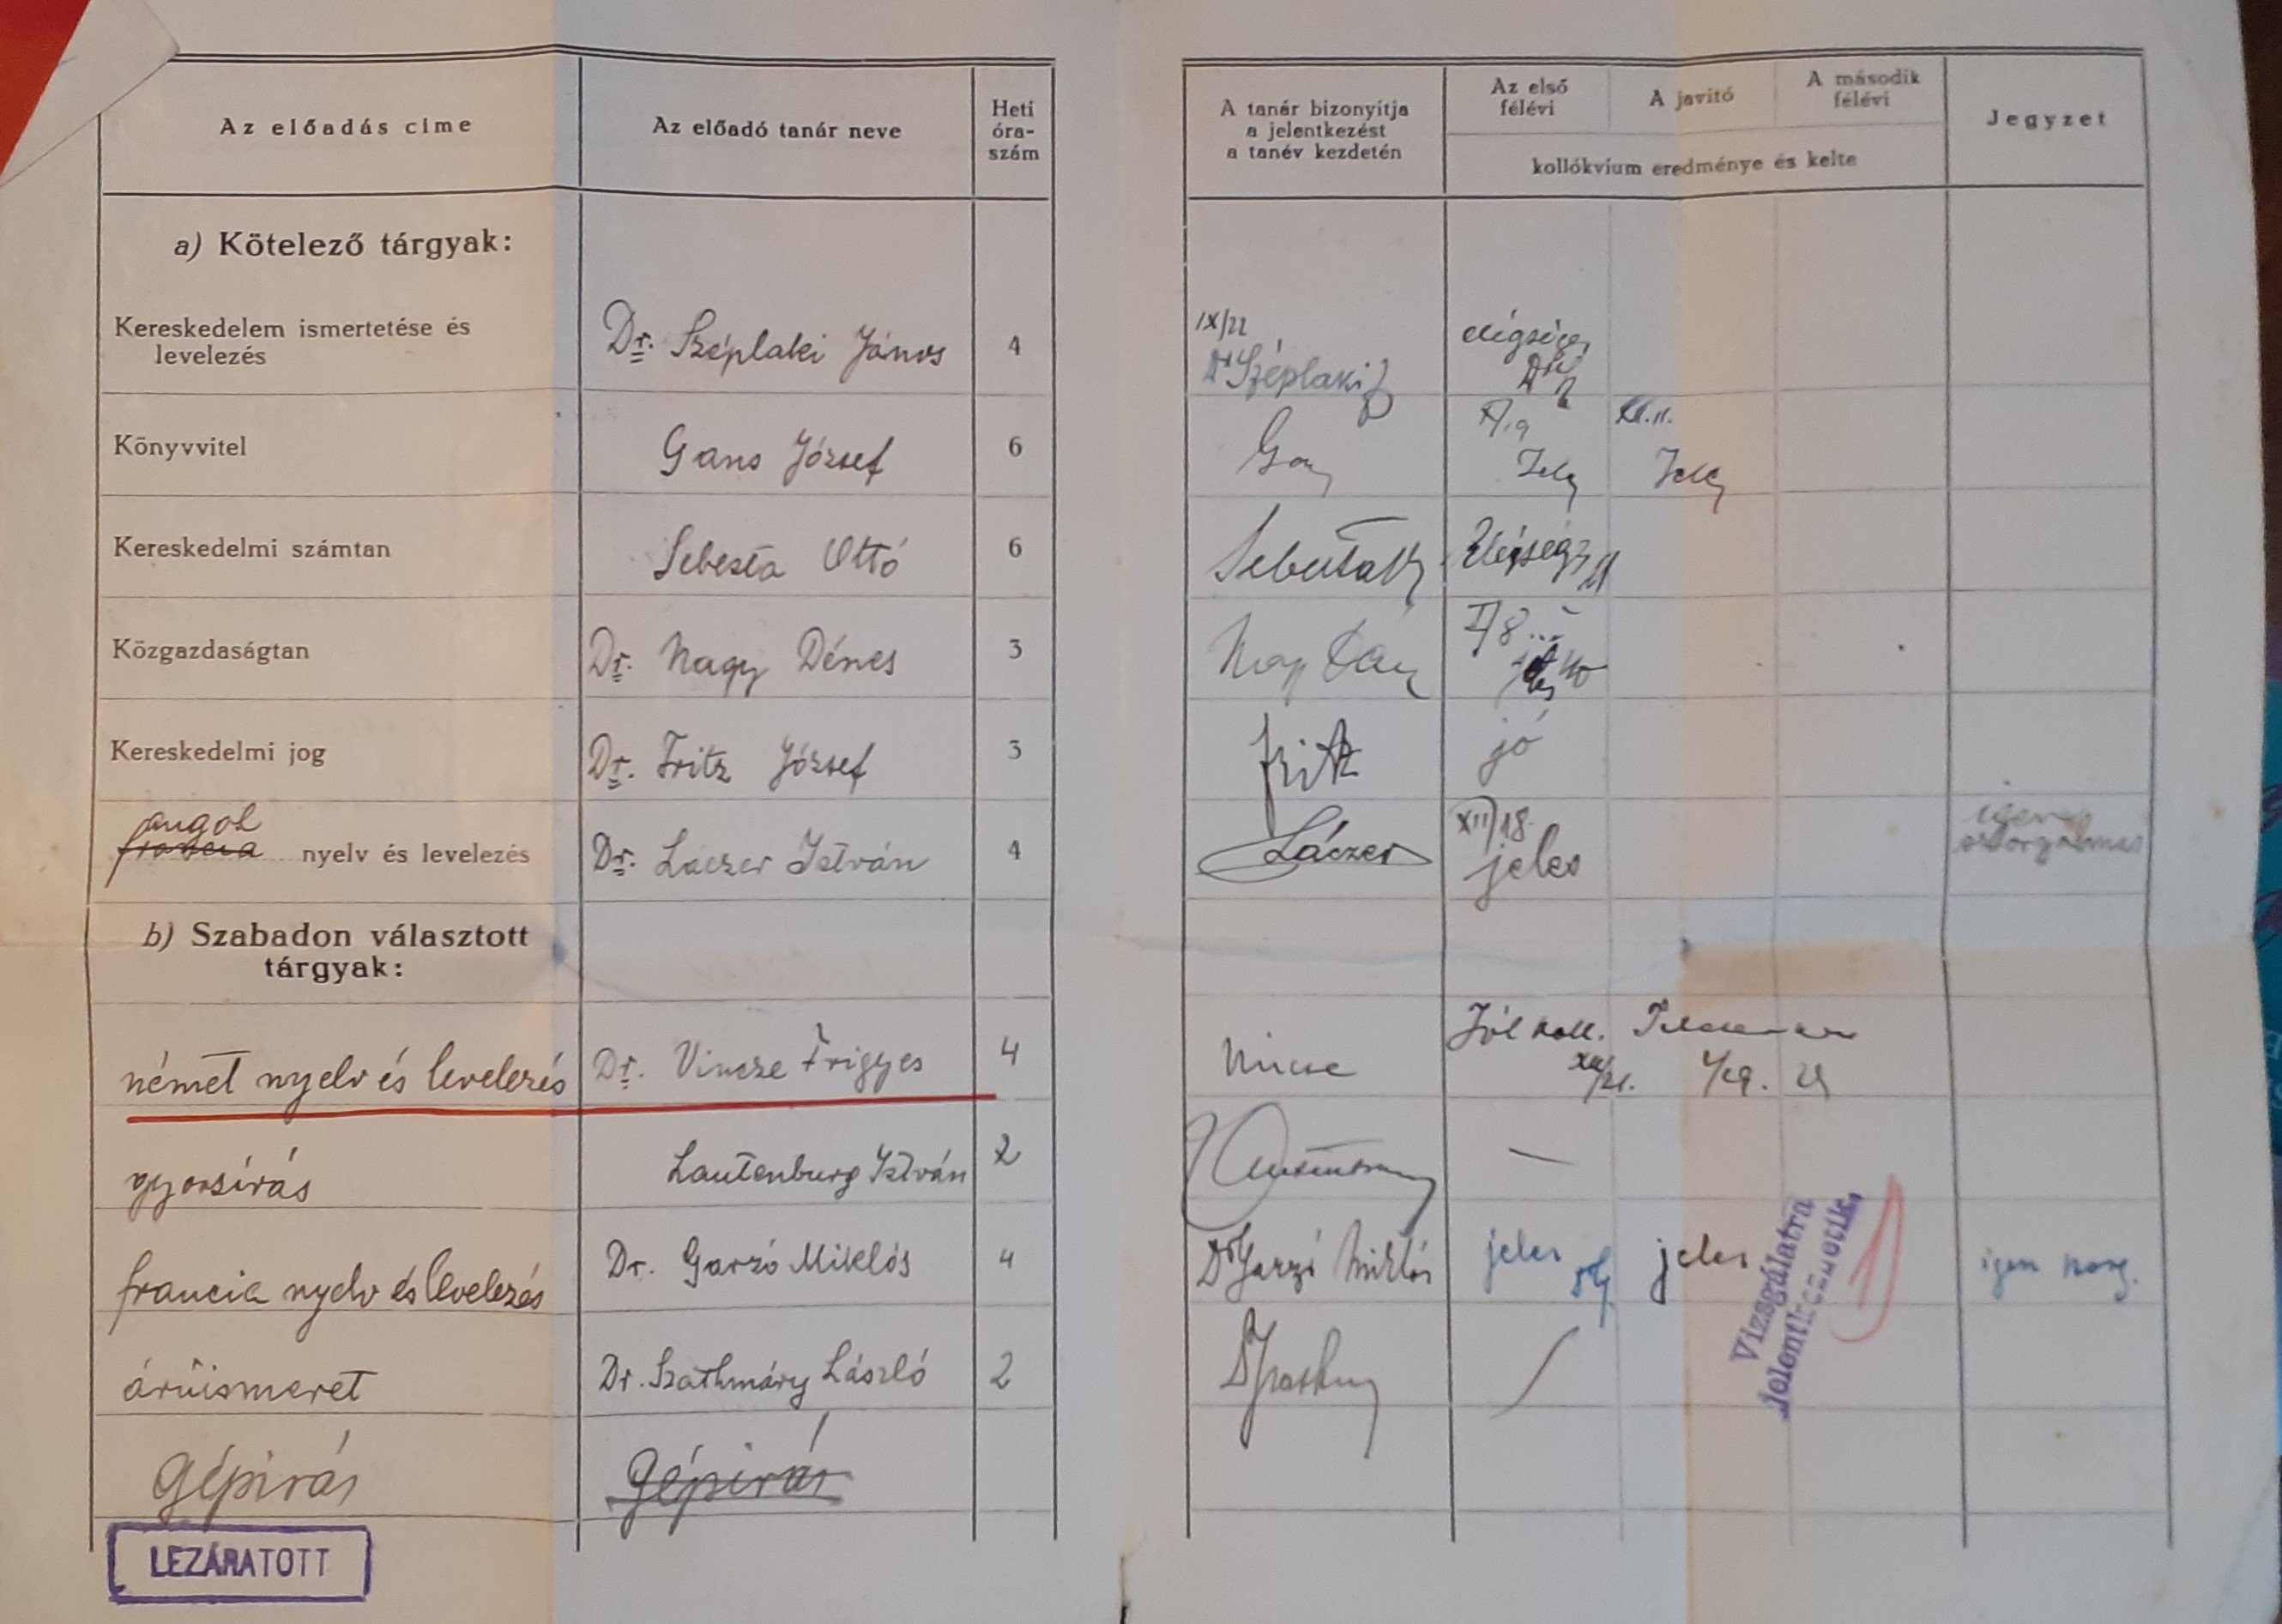 Az előadás címe
Az előadó tanár neve
Heti
óra-
szám
A tanár bizonyítja
a jelentkezést
a tanév kezdetén
Az első
félévi
A javító
A második
félévi
kollókvium eredménye és kelte
Jegyzet
a) Kötelező tárgyak:
Kereskedelem ismertetése és
levelezés
Dr. Széplaki János
4
IX/21
Dr Széplaki J
elégséges
Könyvvitel
Gans József
6
Kereskedelmi számtan
Sebesta Ottó
6
Közgazdaságtan
Dr. Nagy Dénes
3
I/8
Kereskedelmi jog
Dr. Fritz József
3
Fritz
jó
angol
francia nyelv és levelezés
Dr. Láczer István
4
Láczer
XII/18.
jeles
igen
szorgalmas
b) Szabadon választott
tárgyak:
német nyelv és levelezés
Dr. Vincze Frigyes
4
Vincze
Jól koll.
XII/21.
gyorsírás
Lautenburg István
2
—
francia nyelv és levelezés
Dr. Garzó Miklós
4
Dr Garzó Miklós
jeles
jeles
igen szorg.
Vizsgálatra
jelentkezhetik
áruismeret
Dr. Szathmáry László
2
Gépirás
Gépirás
LEZÁRATOTT